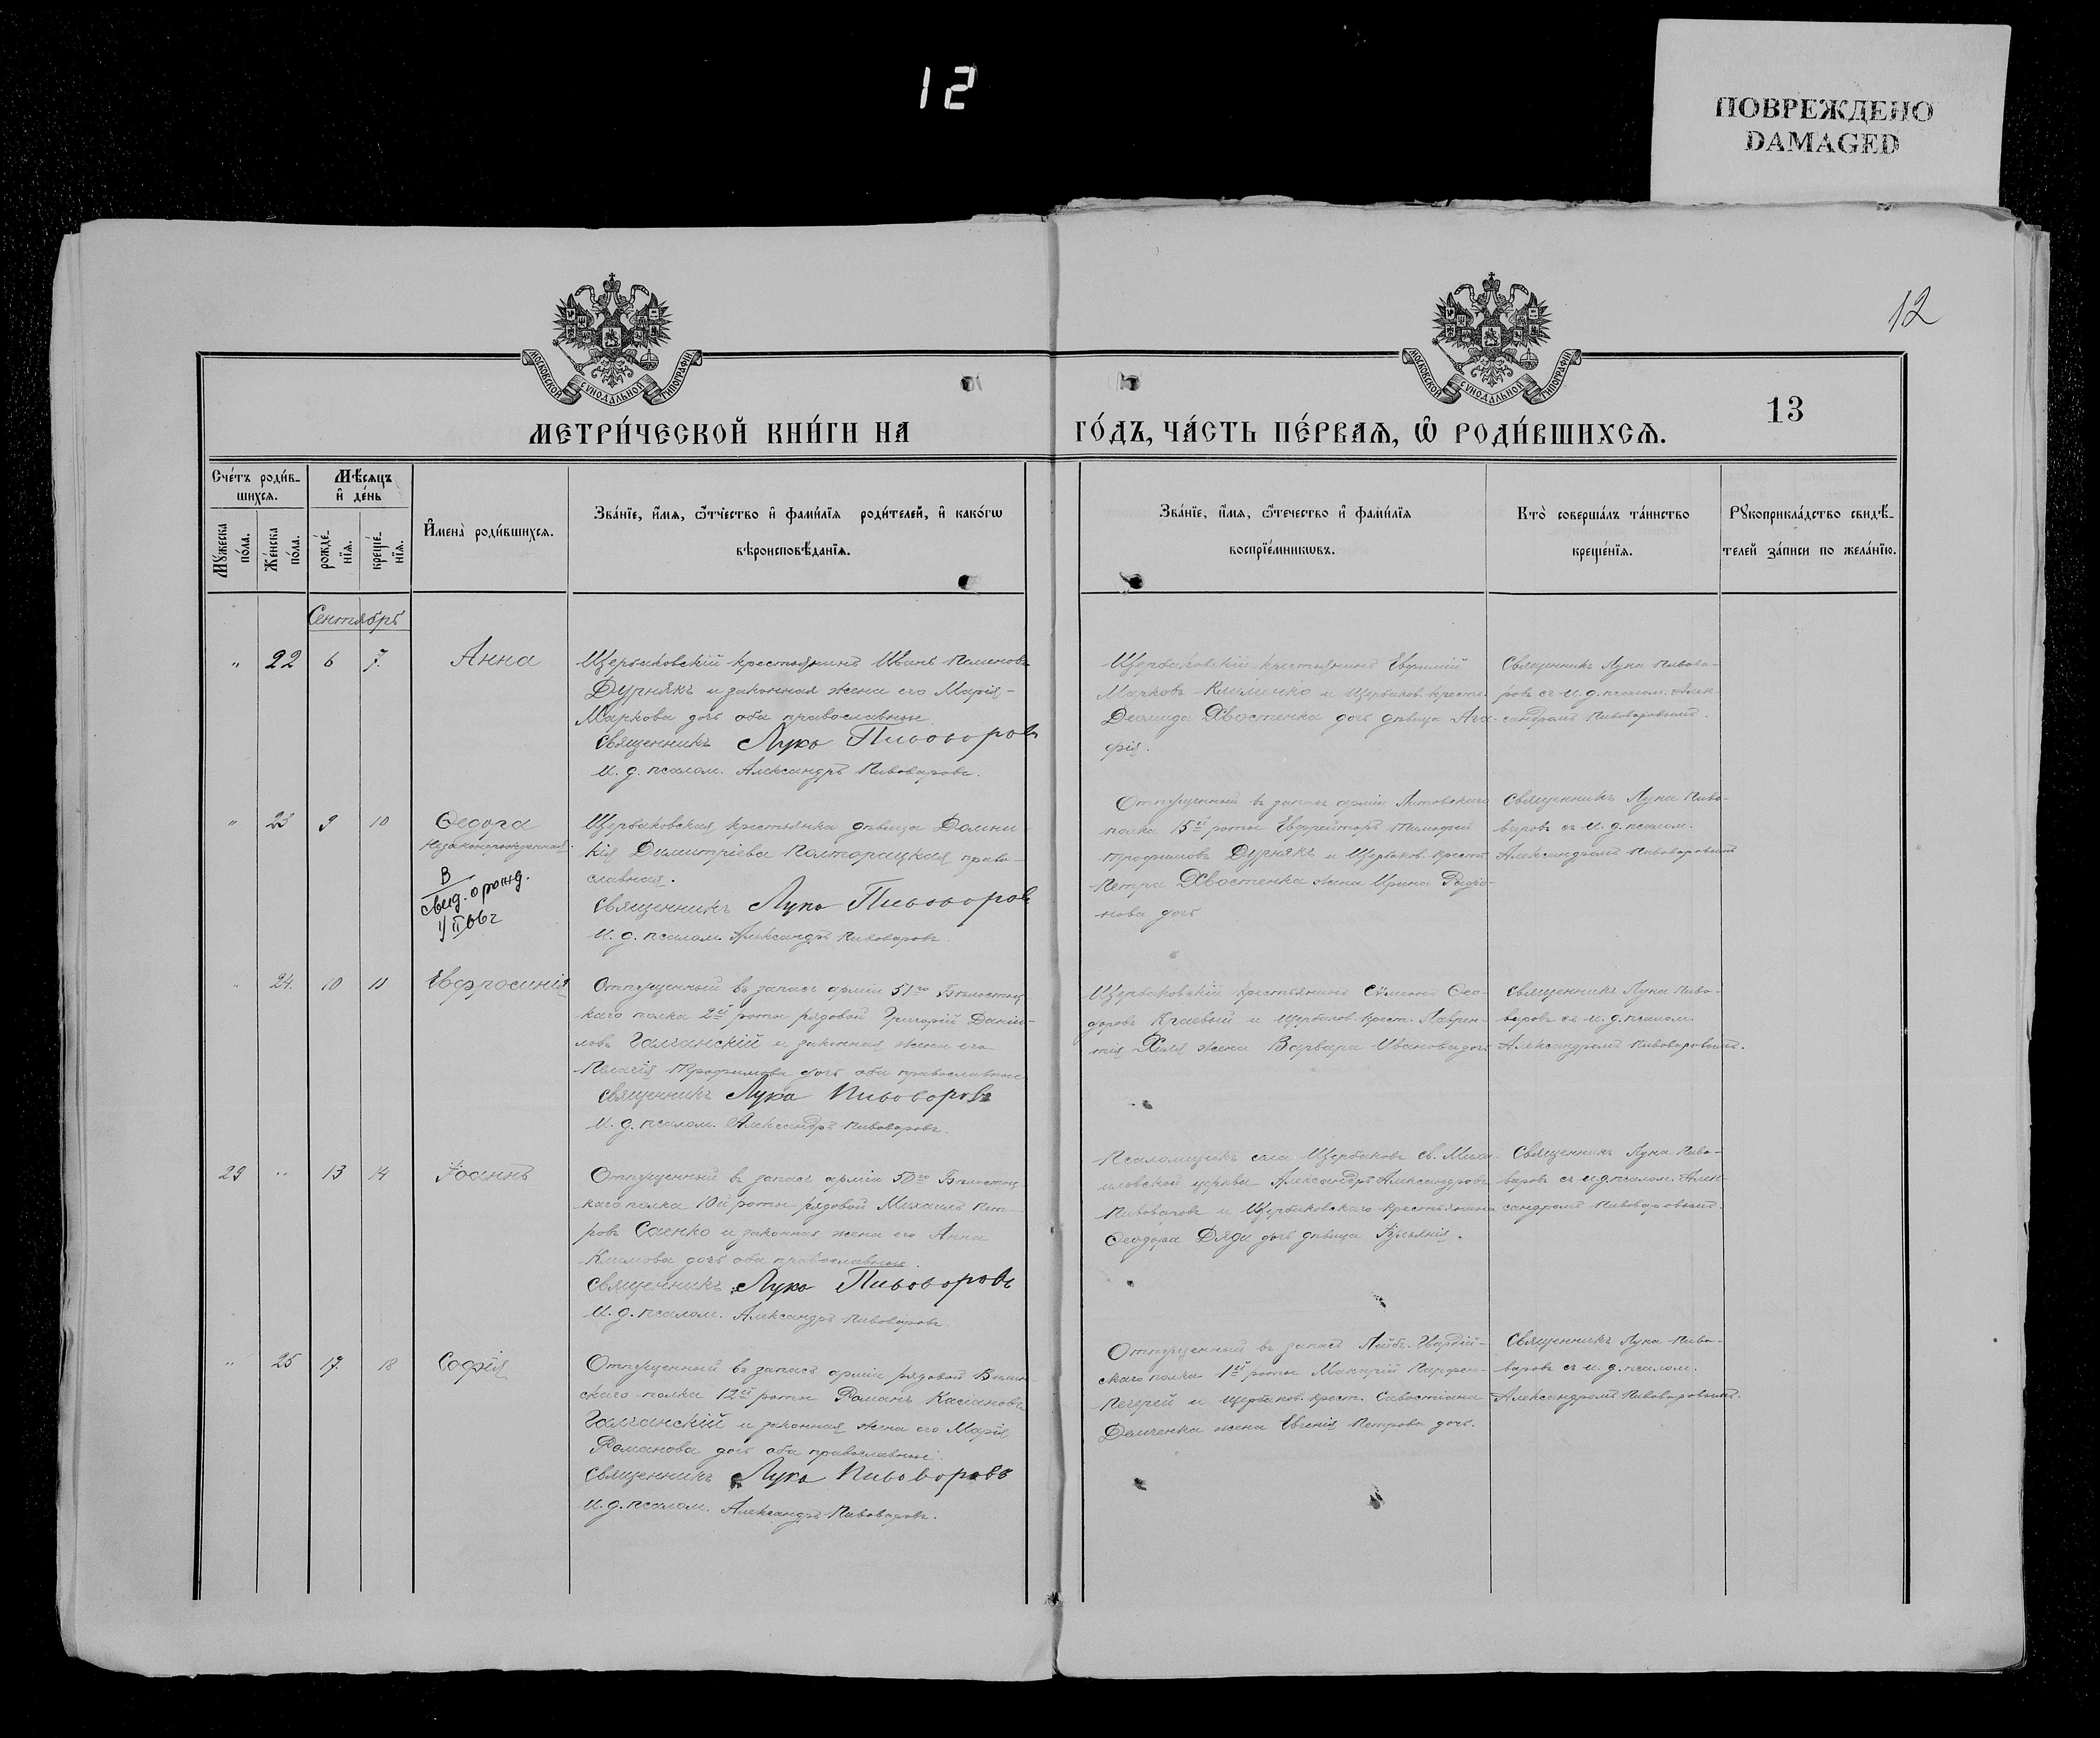 12
ПОВРЕЖДЕНО
DAMAGED
12
МОСКОВСКОЙ СѴНОДАЛЬНОЙ ТИПОГРАФІИ
МОСКОВСКОЙ СѴНОДАЛЬНОЙ ТИПОГРАФІИ
13
МЕТРИ́ЧЕСКОЙ КНИ́ГИ НА ГО́ДЪ, ЧА́СТЬ ПЕ́РВАѦ, Ѡ҆ РОДИ́ВШИХСѦ.
Сче́тъ роди́в-
шихсѧ.
Мѣ́сѧцъ
и҆ де́нь
Мꙋ́жеска
по́ла.
Же́нска
по́ла.
рожде́-
нїѧ.
креще́-
нїѧ.
И҆мена̀ роди́вшихсѧ.
Зва́нїе, и҆́мѧ, ѻ҆́тчество и҆ фами́лїѧ роди́телей, и҆ како́гѡ
вѣроисповѣ́данїѧ.
Зва́нїе, и҆́мѧ, ѻ҆́течество и҆ фами́лїѧ
воспрїе́мникѡвъ.
Кто̀ соверша́лъ та́инство
креще́нїѧ.
Рꙋкоприкла́дство свидѣ́-
телей за́писи по жела́нїю.
Сентябрь
" 22 6 7. Анна
Щербаковскій крестьянинъ Иванъ Пименовъ
Дурнякъ и законная жена его Марія
Маркова дочь оба православные.
Священникъ Лука Пивоваровъ
И. д. псалом. Александръ Пивоваровъ.
Щербаковскій крестьянинъ Евфимій
Марковъ Клименко и Щербаков. крест.
Деомида Хвостенка дочь дѣвица Ага-
фія.
Священникъ Лука Пивова-
ровъ съ и. д. псалом. Алек-
сандромъ Пивоваровымъ.
" 23 9 10 Ѳеодора
незаконорожденная.
В
свид. о рожд.
1/II 66г
Щербаковская крестьянка дѣвица Домни-
кія Димитріева Полторацкая право-
славная.
Священникъ Лука Пивоваровъ
И. д. псалом. Александръ Пивоваровъ.
Отпущенный въ запасъ арміи Литовскаго
полка 15й роты Ефрейторъ Тимофей
Трофимовъ Дурнякъ и Щербаков. крест.
Петра Хвостенка жена Ирина Родіо-
нова дочь
Священникъ Лука Пиво-
варовъ съ и. д. псалом.
Александромъ Пивоваровымъ
" 24. 10 11 Евфросинія
Отпущенный въ запасъ арміи 51го Бѣлостоц-
каго полка 2й роты рядовой Григорій Даніи-
ловъ Галчанскій и законная жена его
Пелагія Трофимова дочь оба православные
Священникъ Лука Пивоваровъ
И. д. псалом. Александръ Пивоваровъ.
Щербаковскій крестьянинъ Сѵмеонъ Ѳео-
доровъ Краевый и Щербаков. крест. Лаврен-
тія жена Варвара Иванова дочь
Священникъ Лука Пиво-
варовъ съ и. д. псалом.
Александромъ Пивоваровымъ.
29 " 13 14 Іоаннъ
Отпущенный въ запасъ арміи 50го Бѣлостоц-
каго полка 10й роты рядовой Михаилъ Пет-
ровъ Саенко и законная жена его Анна
Климова дочь оба православные.
Священникъ Лука Пивоваровъ
И. д. псалом. Александръ Пивоваровъ.
Псаломщикъ села Щербаковъ св. Миха-
иловской церкви Александръ Александровъ
Пивоваровъ и Щербаковскаго крестьянина
Ѳеодора Дяди дочь дѣвица
Священникъ Лука Пиво-
варовъ съ и. д. псалом. Алек-
сандромъ Пивоваровымъ.
" 25 17. 18 Софія
Отпущенный въ запасъ арміи рядовой Вилен-
скаго полка 12й роты Романъ Касіановъ
Галчанскій и законная жена его Марія
Романова дочь оба православные.
Священникъ Лука Пивоваровъ
И. д. псалом. Александръ Пивоваровъ.
Отпущенный въ запасъ Лейбъ-Гвардій-
скаго полка 1й роты Макарій Парфен.
Печерей и Щербаков. крест. Савостіана
Демченка жена Евгенія Петрова дочь.
Священникъ Лука Пиво-
варовъ съ и. д. псалом.
Александромъ Пивоваровымъ.